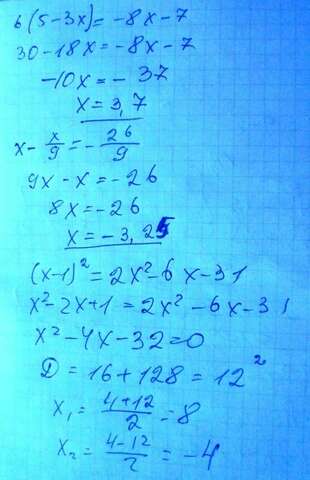 6(5-3x)=-8x-7
30-18x=-8x-7
-10x=-37
x=3,7
x-x/9=-26/9
9x-x=-26
8x=-26
x=-3,25
(x-1)²=2x²-6x-31
x²-2x+1=2x²-6x-31
x²-4x-32=0
D=16+128=12²
x₁=4+12/2=8
x₂=4-12/2=-4